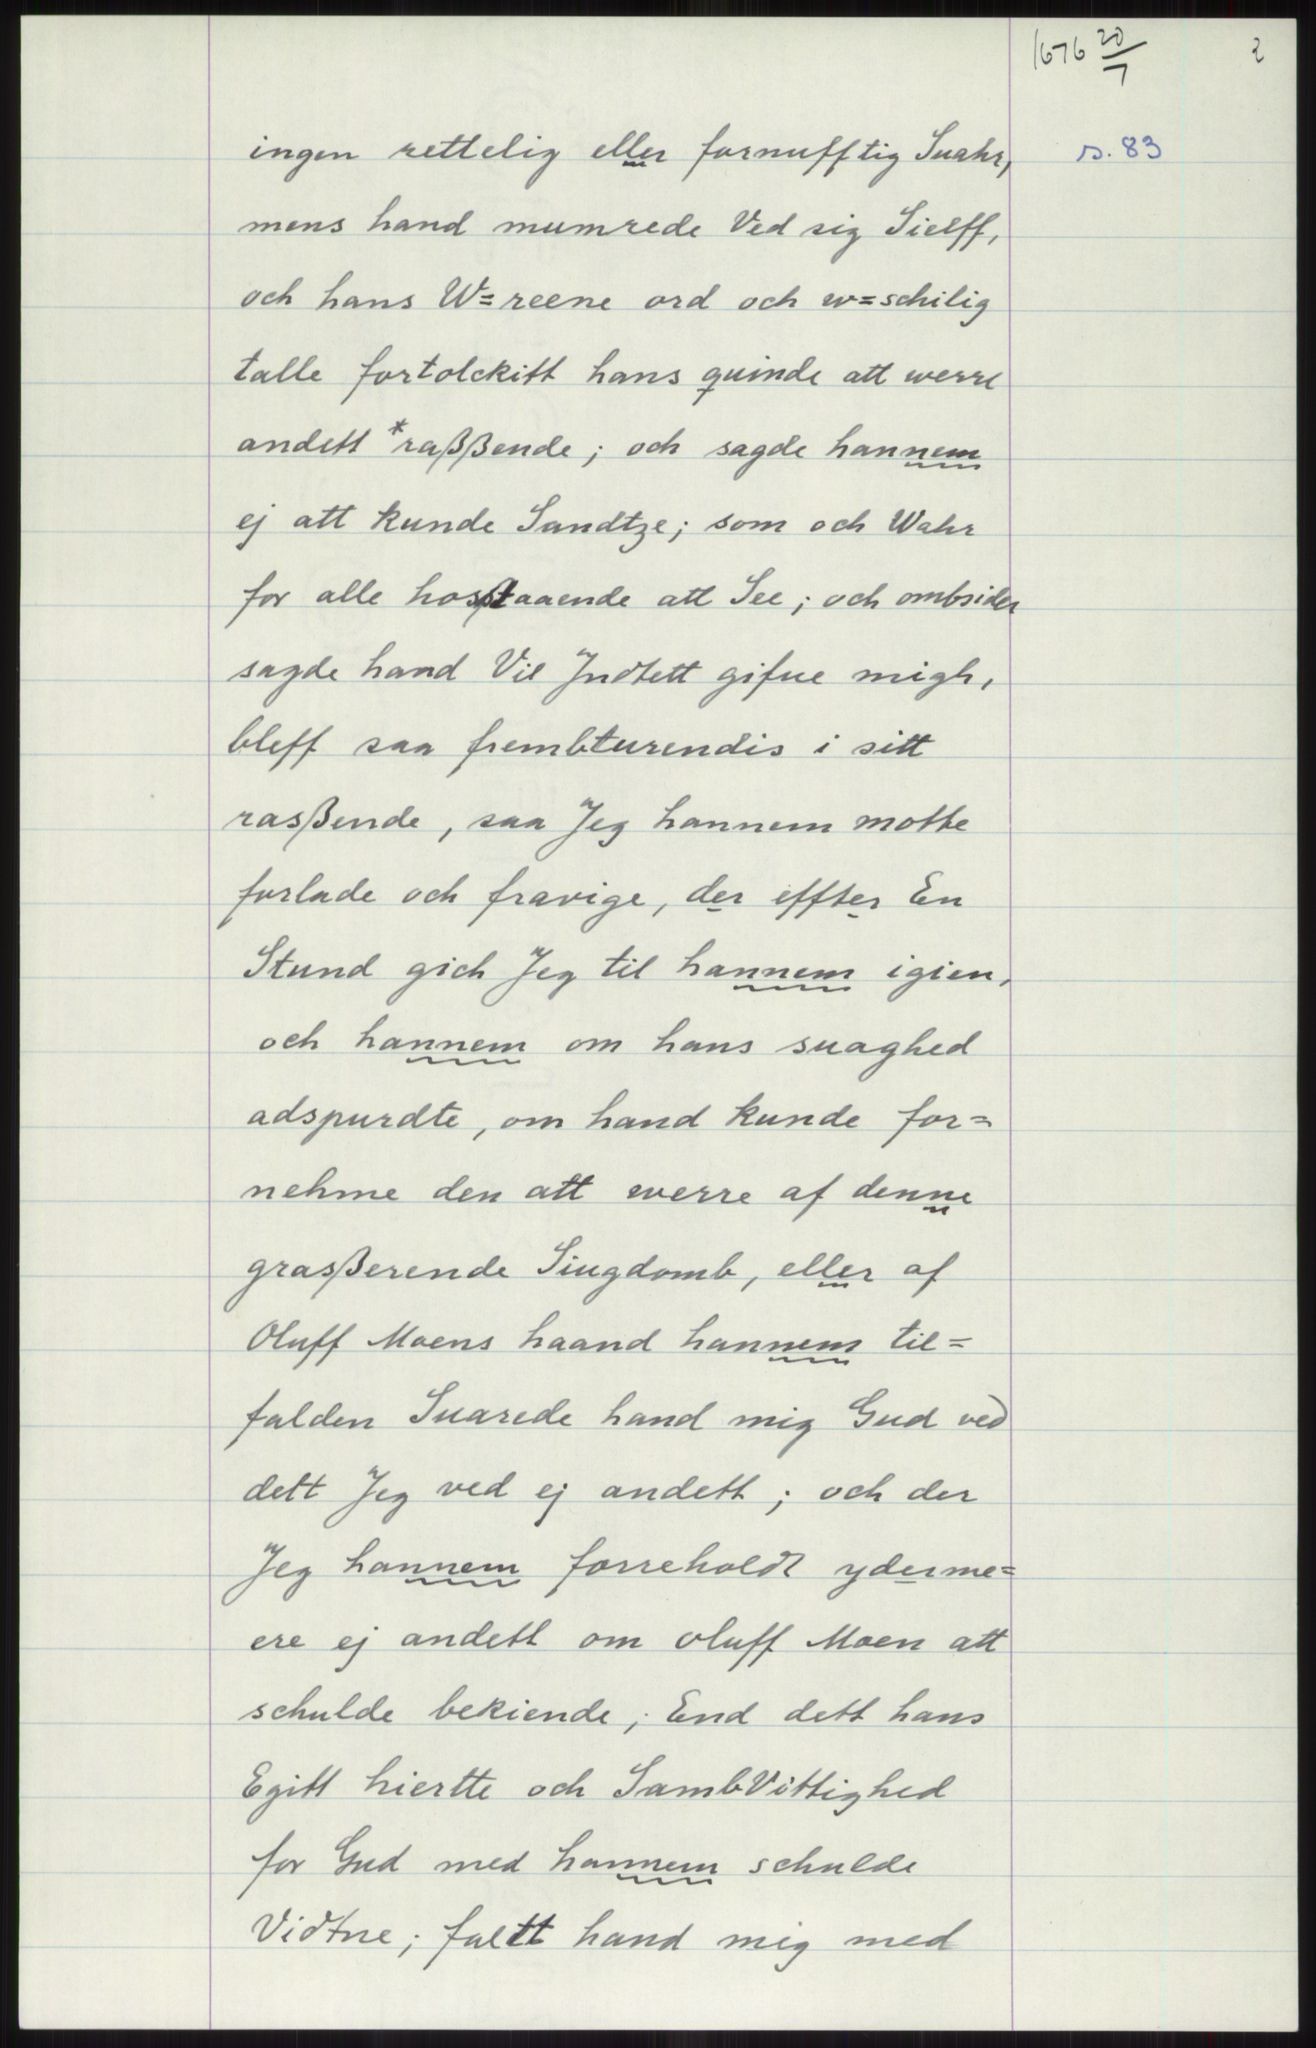 1676 20/7
2
ingen rettelig eller fornufftig Suahr,
s. 83
mens hand mumrede Ved sig Sielff,
och hans W=reene ord och w=schilig
talle fortolckitt hans quinde att werre
andett *raßßende; och sagde hannem
ej att kunde Sandtze; som och Wahr
for alle hosstaaende att See; och ombsider
sagde hand Vil Indtett gifue migh,
bleff saa frembturendis i sitt
rasßende, saa Jeg hannem motte
forlade och fravige, der effter En
Stund gich Jeg til hannem igien,
och hannem om hans suaghed
adspurdte, om hand kunde for=
nehme den att werre af denne
grasßerende Siugdomb, eller af
Oluff Moens haand hannem til=
falden Suarede hand mig Gud ved
dett Jeg ved ej andett; och der
Jeg hannem forreholdt yderme=
ere ej andett om oluff Moen att
schulde bekiende; End dett hans
Egitt hiertte och SambVittighed
for Gud med hannem schulde
Vidtne; faldt hand mig med